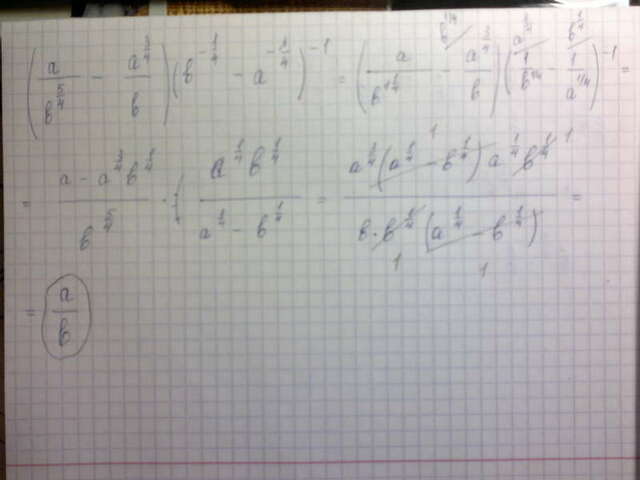 (a/b^{5/4} - a^{3/4}/b)(b^{-1/4} - a^{-1/4})^{-1} = (a/b^{1 1/4} - a^{3/4}/b)(1/b^{1/4} - 1/a^{1/4})^{-1} =
= (a - a^{3/4} b^{1/4})/b^{5/4} · (a^{1/4} b^{1/4})/(a^{1/4} - b^{1/4}) = (a^{3/4}(a^{1/4} - b^{1/4}) a^{1/4} b^{1/4})/(b · b^{1/4}(a^{1/4} - b^{1/4})) =
= a/b